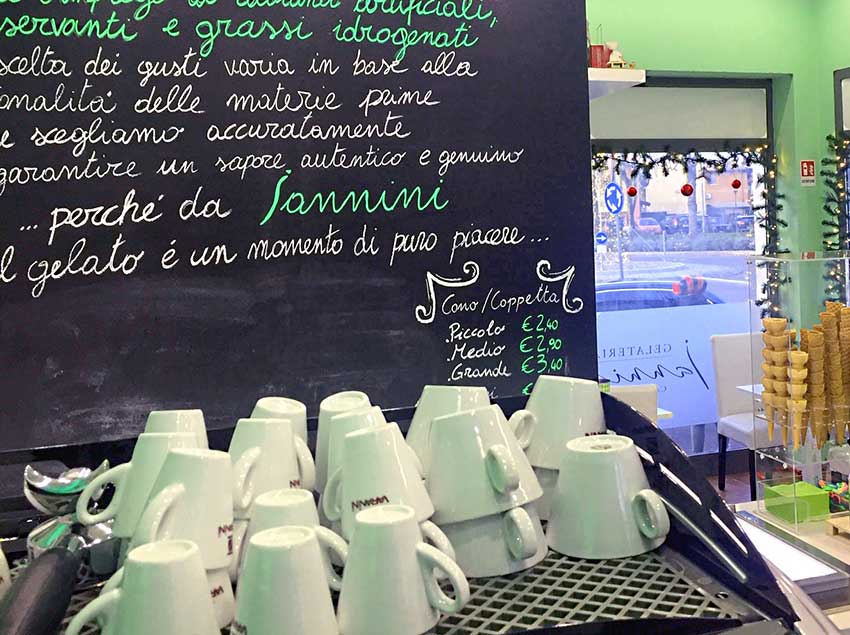 artificiali,
e grassi idrogenati
dei gusti varia in base alla
delle materie prime
scegliamo accuratamente
garantire un sapore autentico e genuino
... perché da Iannini
gelato é un momento di puro piacere ...
Cono/Coppetta
.Piccolo € 2,40
.Medio € 2,90
.Grande € 3,40
€